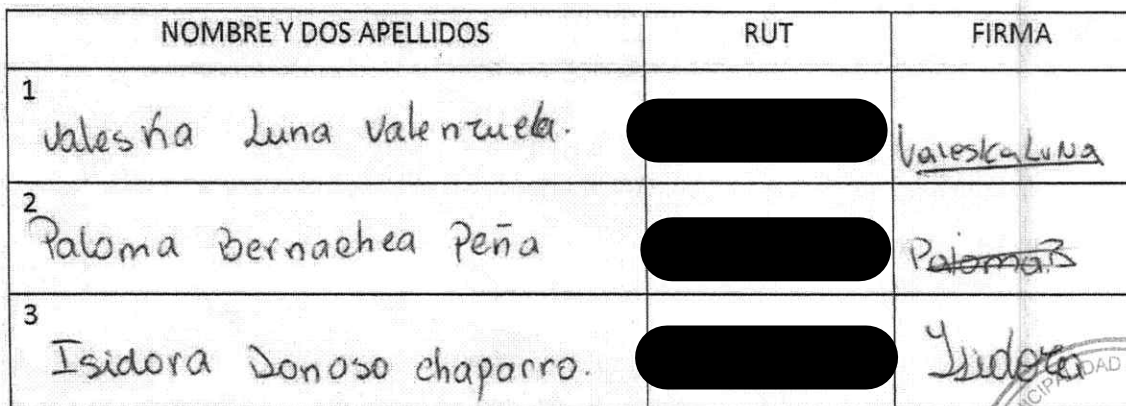 NOMBRE Y DOS APELLIDOS RUT FIRMA
1
Valeska Luna Valenzuela. Valeska Luna
2
Paloma Bernachea Peña Paloma.B
3
Isidora Donoso chaparro. Isidora